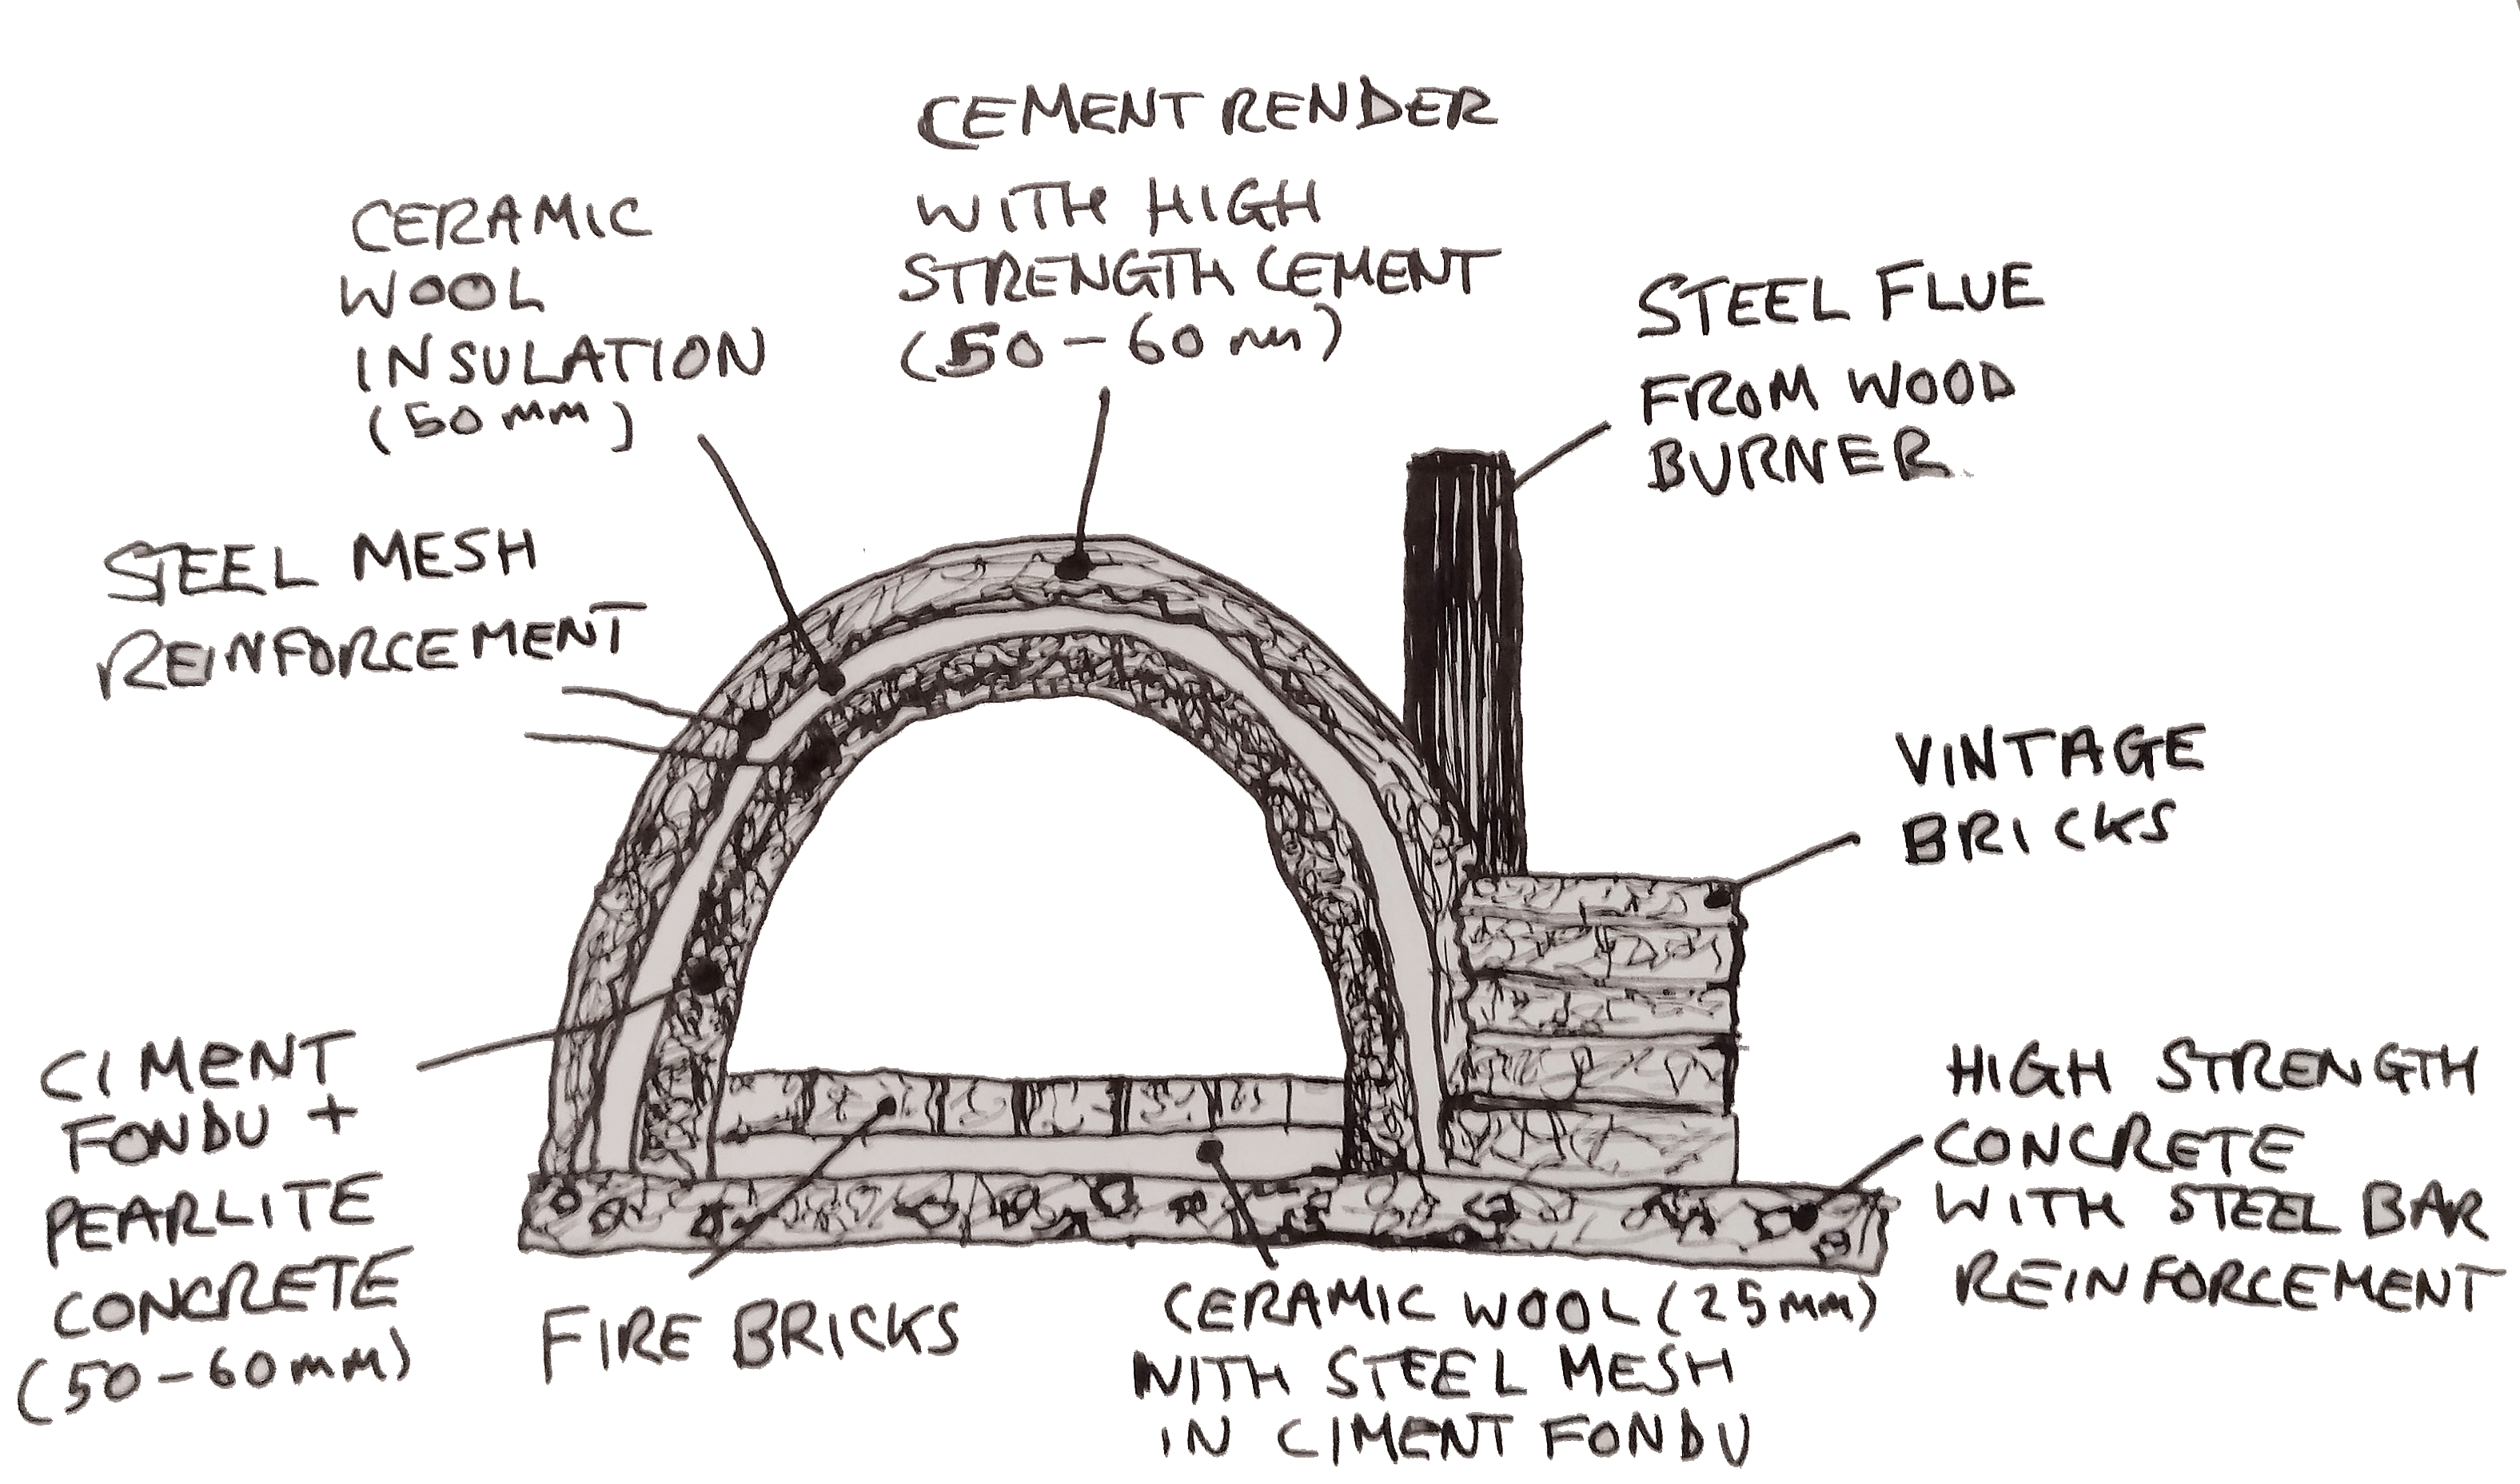 CEMENT RENDER
WITH HIGH
STRENGTH CEMENT
(50-60mm)
CERAMIC
WOOL
INSULATION
(50mm)
STEEL FLUE
FROM WOOD
BURNER
STEEL MESH
REINFORCEMENT
VINTAGE
BRICKS
CIMENT
FONDU +
PEARLITE
CONCRETE
(50-60mm)
HIGH STRENGTH
CONCRETE
WITH STEEL BAR
REINFORCEMENT
FIRE BRICKS
CERAMIC WOOL (25mm)
WITH STEEL MESH
IN CIMENT FONDU